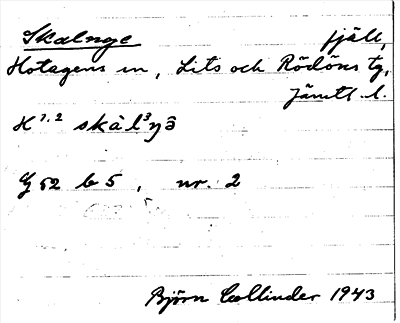 Skalnge fjäll,
Hotagens sn, Lits och Rödöns tg,
Jämtl. l.
H¹,² skàl³ŋə̂
G 52 b 5, nr. 2
Björn Collinder 1943